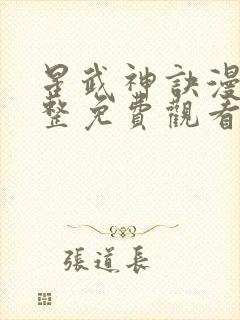 星武神訣漫
整免費觀看
張道長